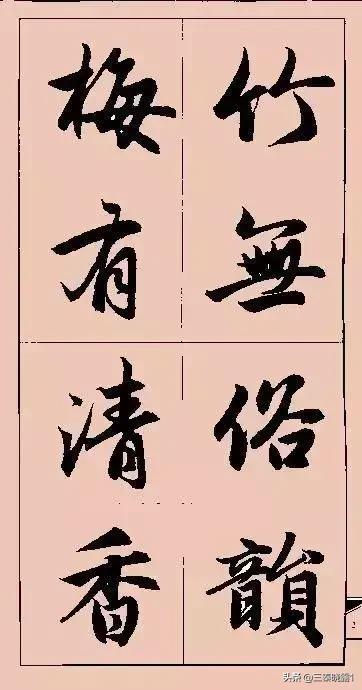 竹無俗韻
梅有清香
头条@三秦晓籟1